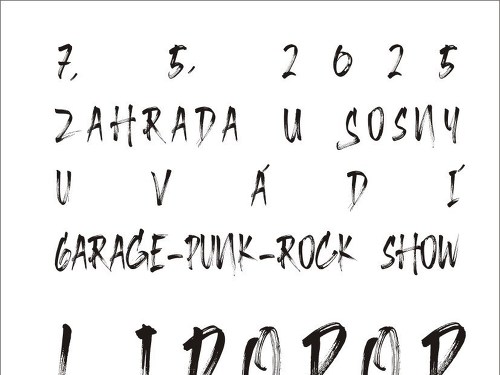 7. 5. 2025
ZAHRADA U SOSNY
UVÁDÍ
GARAGE-PUNK-ROCK SHOW